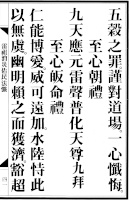 五殺之罪謹對道場一心懺悔
至心朝禮
九天應元雷聲普化天尊九拜
至心皈命禮
仁能博愛威可遠加水陸恃此
以無虞幽明賴之而獲濟豁超